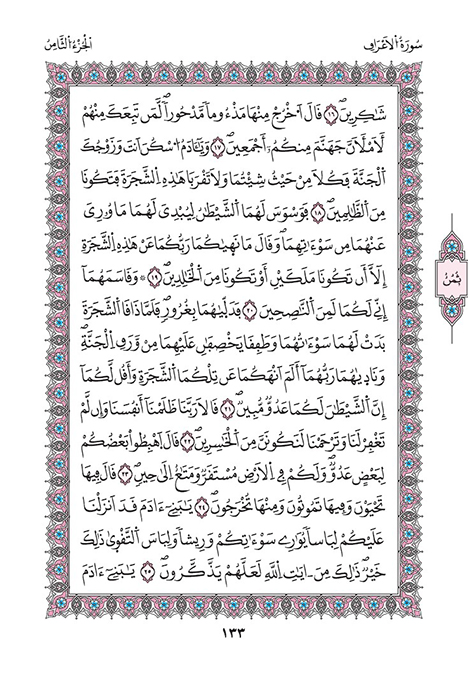 سُورَةُ الْأَعْرَافِ
الْجُزْءُ الثَّامِنُ
شَٰكِرِينَ ١٦ قَالَ اَخْرُجْ مِنْهَا مَذْءُوماٗ مَّدْحُوراٗ لَّمَن تَبِعَكَ مِنْهُمْ
لَأَمْلَأَنَّ جَهَنَّمَ مِنكُمُۥٓ أَجْمَعِينَ ١٧ وَيَٰٓـَٔادَمُ اُ۟سْكُنَ اَنتَ وَزَوْجُكَ
اَ۬لْجَنَّةَ فَكُلَا مِنْ حَيْثُ شِئْتُمَا وَلَا تَقْرَبَا هَٰذِهِ اِ۬لشَّجَرَةَ فَتَكُونَا
مِنَ اَ۬لظَّٰلِمِينَ ١٨ فَوَسْوَسَ لَهُمَا اَ۬لشَّيْطَٰنُ لِيُبْدِيَ لَهُمَا مَا وُۥرِيَ
عَنْهُمَا مِن سَوْءَٰتِهِمَا وَقَالَ مَا نَهَيٰكُمَا رَبُّكُمَا عَنْ هَٰذِهِ اِ۬لشَّجَرَةِ
إِلَّآ أَن تَكُونَا مَلَكَيْنِ أَوْ تَكُونَا مِنَ اَ۬لْخَٰلِدِينَ ١٩ ۞ وَقَاسَمَهُمَآ
إِنِّے لَكُمَا لَمِنَ اَ۬لنَّٰصِحِينَ ٢٠ فَدَلَّيٰهُمَا بِغُرُورٖ فَلَمَّا ذَاقَا اَ۬لشَّجَرَةَ
بَدَتْ لَهُمَا سَوْءَٰتُهُمَا وَطَفِقَا يَخْصِفَٰنِ عَلَيْهِمَا مِنْ وَّرَقِ اِ۬لْجَنَّةِ
وَنَادَيٰهُمَا رَبُّهُمَآ أَلَمَ اَنْهَكُمَا عَن تِلْكُمَا اَ۬لشَّجَرَةِ وَأَقُل لَّكُمَآ
إِنَّ اَ۬لشَّيْطَٰنَ لَكُمَا عَدُوّٞ مُّبِينٞ ٢١ قَالَا رَبَّنَا ظَلَمْنَآ أَنفُسَنَا وَإِن لَّمْ
تَغْفِرْ لَنَا وَتَرْحَمْنَا لَنَكُونَنَّ مِنَ اَ۬لْخَٰسِرِينَ ٢٢ قَالَ اَ۪هْبِطُواْ بَعْضُكُمْ
لِبَعْضٍ عَدُوّٞ وَلَكُمْ فِے اِ۬لَارْضِ مُسْتَقَرّٞ وَمَتَٰعٌ اِلَىٰ حِينٖ ٢٣ قَالَ فِيهَا
تَحْيَوْنَ وَفِيهَا تَمُوتُونَ وَمِنْهَا تُخْرَجُونَ ٢٤ يَٰبَنِےٓ ءَادَمَ قَدَ اَنزَلْنَا
عَلَيْكُمْ لِبَاساٗ يُوَٰرِے سَوْءَٰتِكُمْ وَرِيشاٗ وَلِبَاسَ اَ۬لتَّقْوٜيٰ ذَٰلِكَ
خَيْرٞ ذَٰلِكَ مِنَ اٰيَٰتِ اِ۬للَّهِ لَعَلَّهُمْ يَذَّكَّرُونَ ٢٥ يَٰبَنِےٓ ءَادَمَ
ثُمُنُ
١٣٣